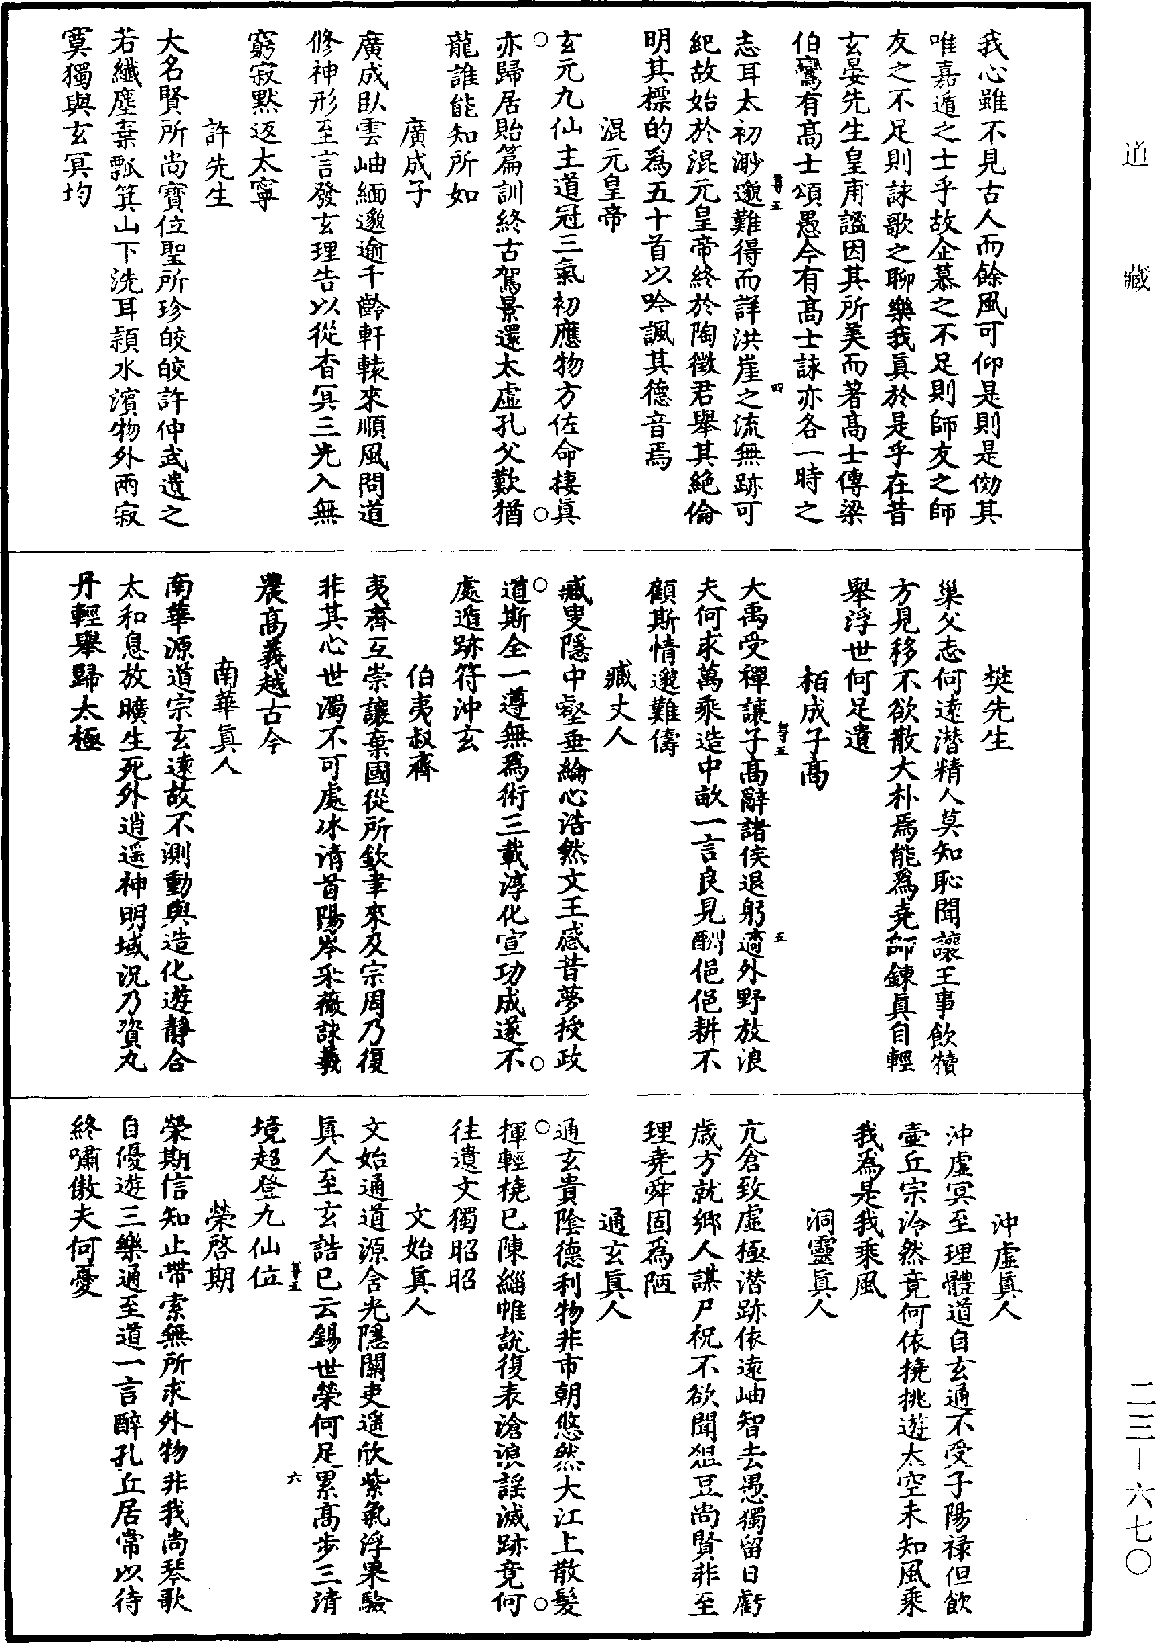 道藏
我心雖不見古人而餘風可仰是則是傚其
唯嘉遁之士乎故企慕之不足則師友之師
友之不足則詠歌之聊樂我真於是乎在昔
玄晏先生皇甫謐因其所美而著高士傳梁
伯鸞有高士頌愚今有高士詠亦各一時之
志耳太初渺邈難得而詳洪崖之流無跡可
紀故始於混元皇帝終於陶徵君舉其絕倫
明其標的為五十首以吟諷其德音焉
混元皇帝
玄元九仙主道冠三氣初應物方佐命棲真
亦歸居貽篇訓終古駕景還太虛孔父歎猶
龍誰能知所如
廣成子
廣成臥雲岫緬邈逾千齡軒轅來順風問道
修神形至言發玄理告以從杳冥三光入無
窮寂默返太寧
許先生
大名賢所尚寶位聖所珍皎皎許仲武遺之
若纖塵棄瓢箕山下洗耳潁水濱物外兩寂
寞獨與玄冥均
樊先生
巢父志何遠潛精人莫知恥聞讓王事飲犢
方見移不欲散大朴焉能為堯師鍊真自輕
舉浮世何足遺
柏成子高
大禹受禪讓子高辭諸侯退躬適外野放浪
夫何求萬乘造中畝一言良見酬俋俋耕不
顧斯情邈難儔
臧丈人
臧叟隱中壑垂綸心浩然文王感昔夢授政
道斯全一遵無為術三載淳化宣功成遂不
處遁跡符沖玄
伯夷叔齊
夷齊互崇讓棄國從所欽聿來及宗周乃復
非其心世濁不可處冰清首陽岑采薇詠羲
農高義越古今
南華真人
南華源道宗玄遠故不測動與造化遊靜合
太和息放曠生死外逍遙神明域況乃資丸
丹輕舉歸太極
沖虛真人
沖虛冥至理體道自玄通不受子陽祿但飲
壺丘宗泠然竟何依撓挑遊太空未知風乘
我為是我乘風
洞靈真人
亢倉致虛極潛跡依遠岫智去愚獨留日虧
歲方就鄉人謀尸祝不欲聞俎豆尚賢非至
理堯舜固為陋
通玄真人
通玄貴陰德利物非市朝悠然大江上散髮
揮輕橈已陳緇帷說復表滄浪謠滅跡竟何
往遺文獨昭昭
文始真人
文始通道源含光隱關吏遙欣紫氣浮果驗
真人至玄誥已云錫世榮何足累高步三清
境超登九仙位
榮啓期
榮期信知止帶索無所求外物非我尚琴歌
自優遊三樂通至道一言醉孔丘居常以待
終嘯傲夫何憂
二三—六七〇